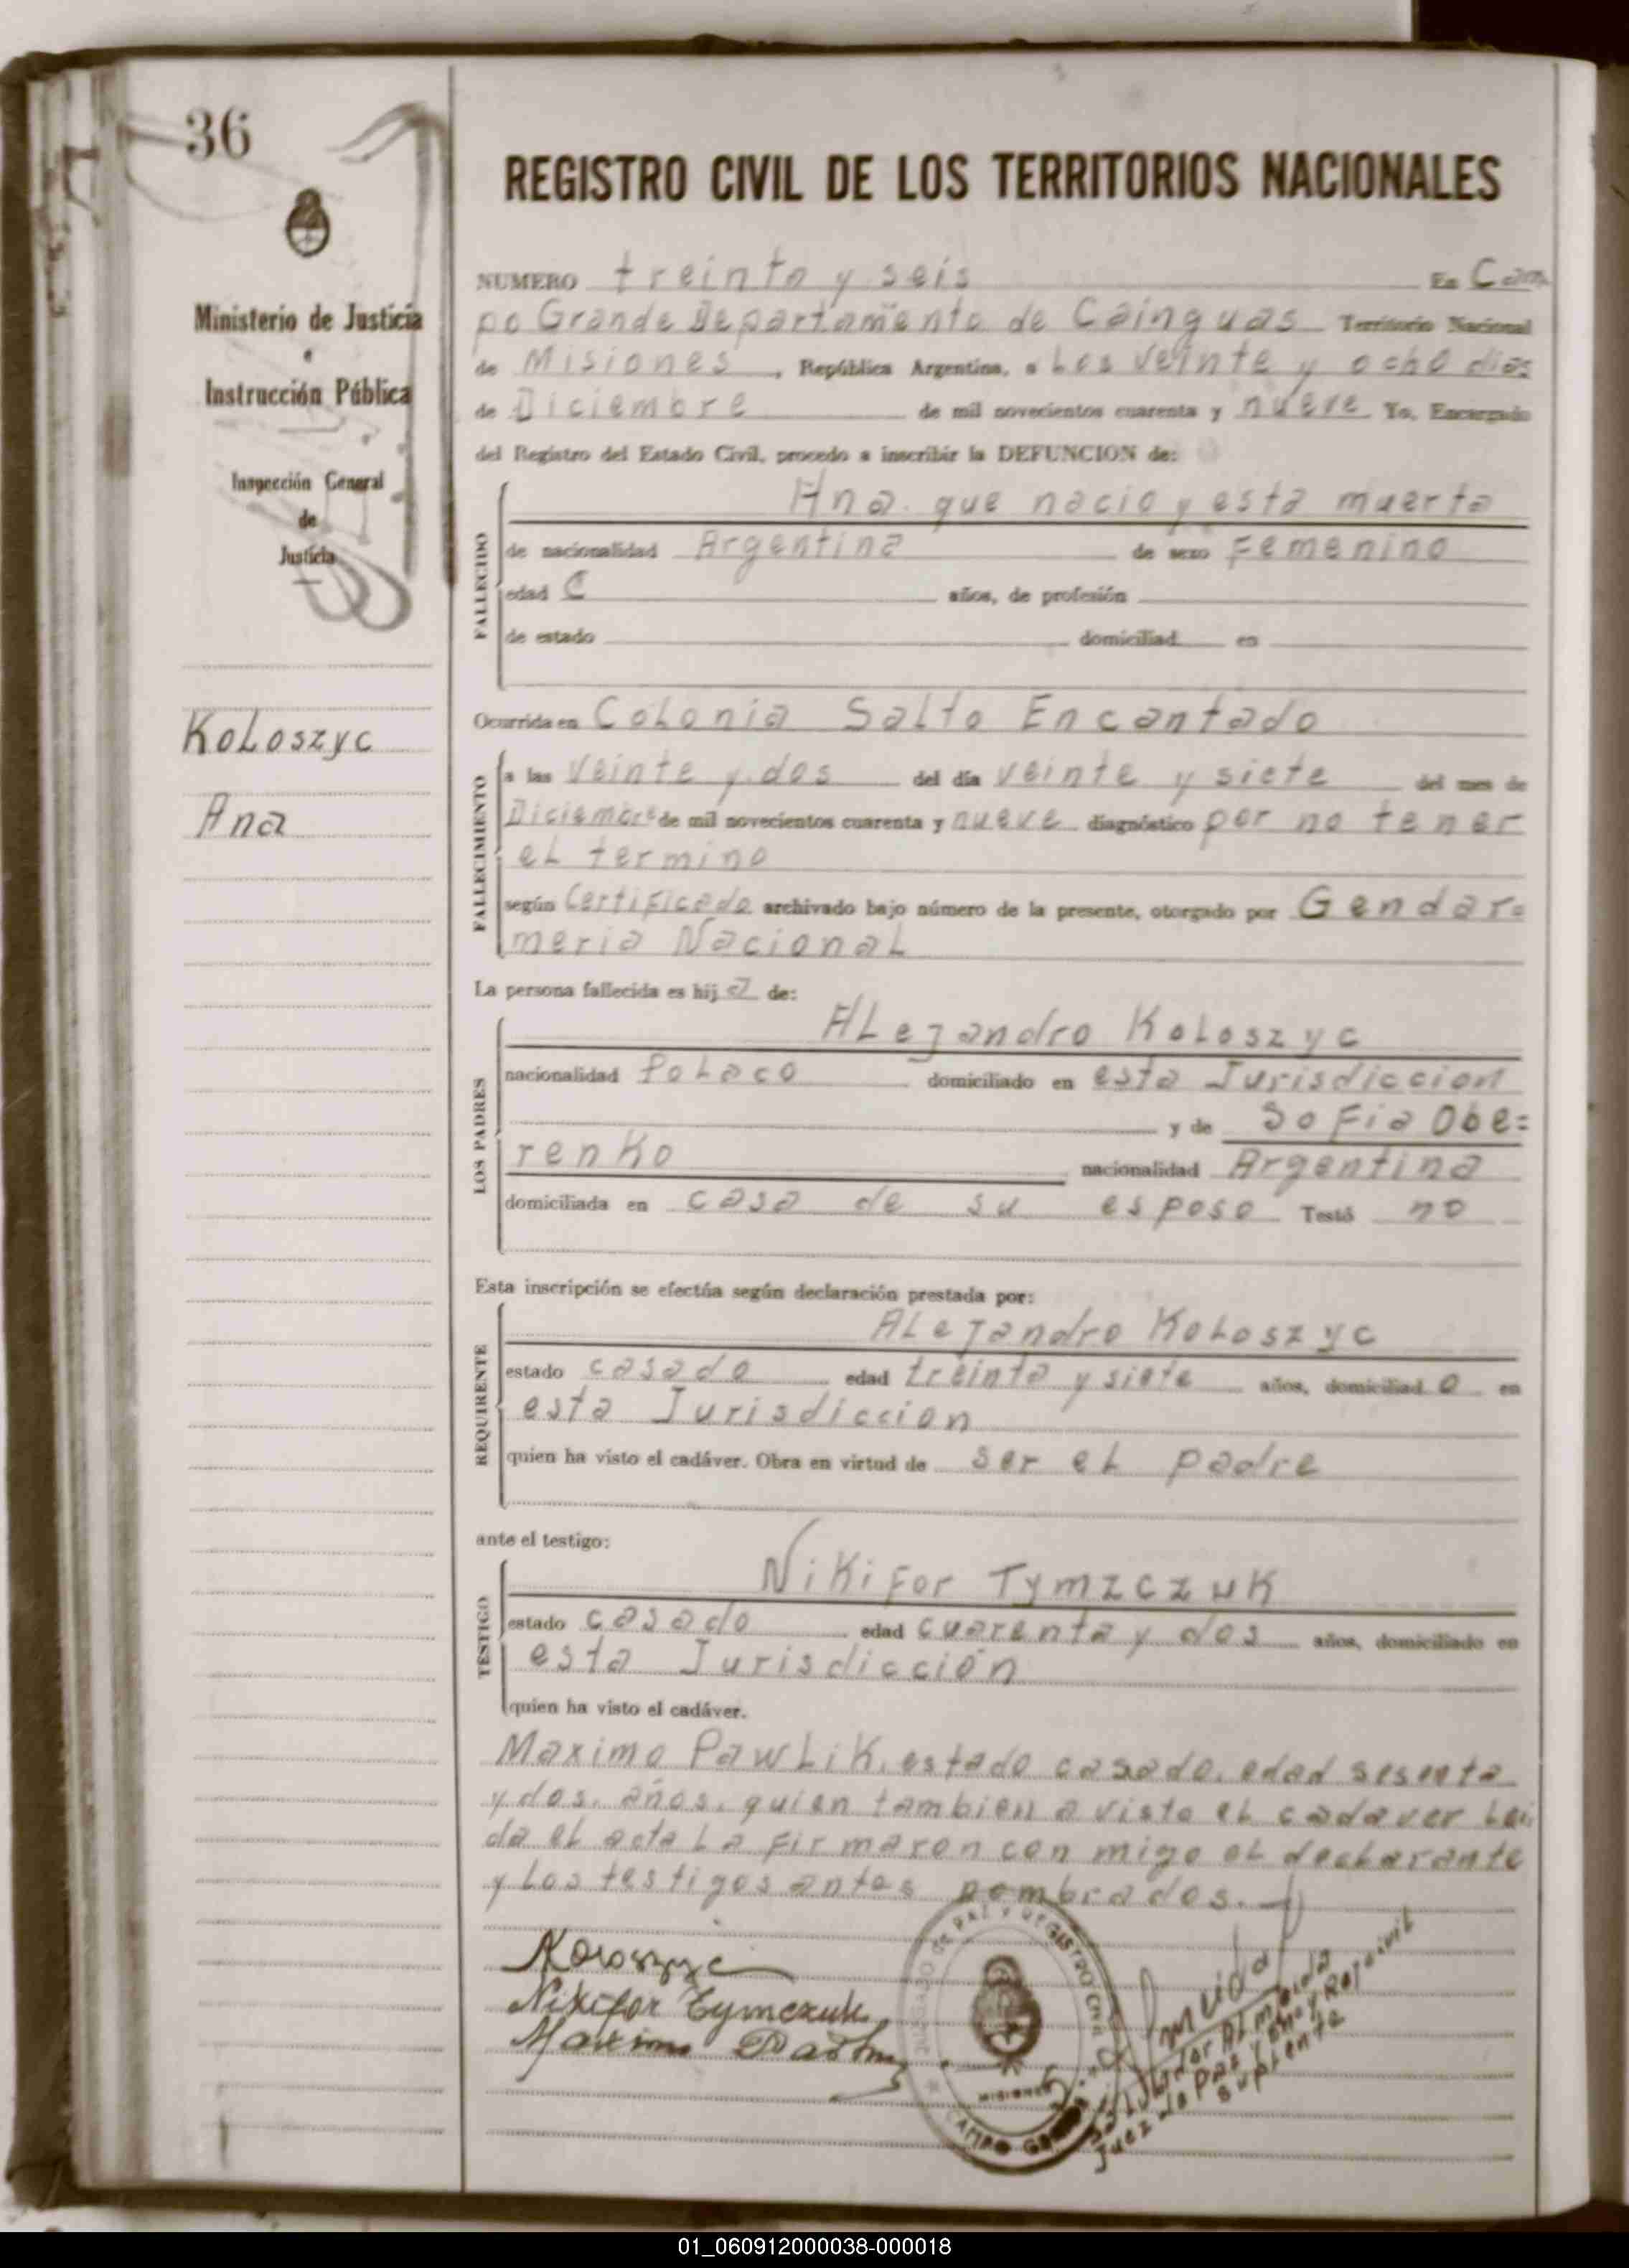 36
Ministerio de Justicia
e
Instrucción Pública
Inspección General
de
Justicia
KoLoszyc
Ana
REGISTRO CIVIL DE LOS TERRITORIOS NACIONALES
NUMERO treinta y seis En Cam
po Grande Departamento de Cainguas Territorio Nacional
de Misiones, República Argentina, a Los veinte y ocho dias
de Diciembre de mil novecientos cuarenta y nueve Yo, Encargado
del Registro del Estado Civil, procedo a inscribir la DEFUNCION de:
Ana. que nacio y esta muerta
FALLECIDO
de nacionalidad Argentina de sexo Femenino
edad años, de profesión
de estado domiciliad en
Ocurrida en CoLonia Salto Encantado
FALLECIMIENTO
a las veinte y dos del día veinte y siete del mes de
Diciembre de mil novecientos cuarenta y nueve diagnóstico por no tener
eL termino
según Certificado archivado bajo número de la presente, otorgado por Gendar=
meria NacionaL
La persona fallecida es hija de:
LOS PADRES
ALejandro KoLoszyc
nacionalidad PoLaco domiciliado en esta Jurisdiccion
y de Sofia Obe=
renko nacionalidad Argentina
domiciliada en casa de su esposo Testó no
Esta inscripción se efectúa según declaración prestada por:
REQUIRENTE
ALejandro KoLoszyc
estado casado edad treinta y siete años, domiciliado en
esta Jurisdiccion
quien ha visto el cadáver. Obra en virtud de ser eL padre
ante el testigo:
TESTIGO
NiKiFor Tymzczuk
estado casado edad cuarenta y dos años, domiciliado en
esta Jurisdicción
quien ha visto el cadáver.
Maximo PawLiK. estado casado. edad sesenta
y dos. años. quien tambien a visto eL cadaver Lei
da eL acta La firmaron con migo eL decLarante
y Los testigos antes nombrados.
Koloszyc
Nikifor Tymczuk
Maximo
JUZGADO DE PAZ Y REGISTRO CIVIL
MISIONES
CAMPO GRANDE
Almeida
Salvador ALmeida
Juez de Paz y Enc. Reg. Civil
suplente
01_060912000038-000018